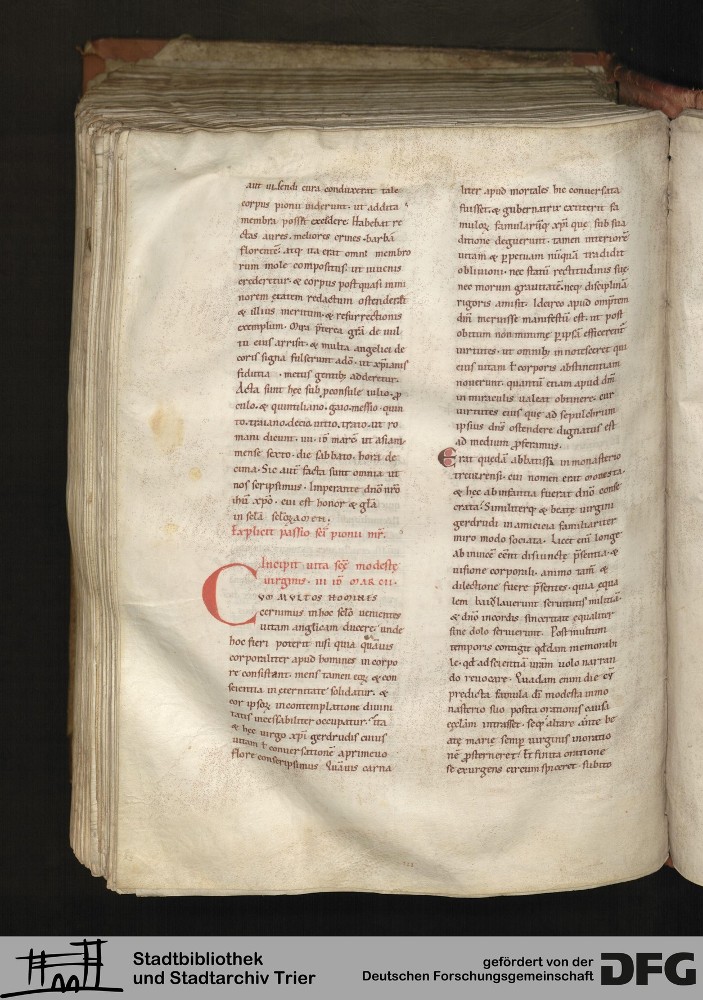 aut iuuandi cura conduxerat tale
corpus pionii uiderunt. ut addita
membra possēt excedere. Habebat re
ctas aures. meliores crines. barbā
florentē. atq; ita erat omni membro
rum mole compositus. ut iuuenis
crederetur. & corpus post quasi mini
norem ętatem redactum ostenderēt
& illius meritum. & resurrectionis
exemplum. Mira p̄terea gr̄a de uul
tu eius arrisit. & multa angelici de
coris signa fulserunt adō. ut xp̄ianis
fiducia. metus gentib; adderetur.
Acta sunt hęc sub p̱consule iulio. p
culo. & quintiliano. gaio messio. quin
to. traiano. decio. uitio. trato. ut ro
mani dicunt. iiii. id̄ marē. ut asiani
mense sexto. die sabbato. hora de
cima. Sic aut̄ facta sunt omnia ut
nos scripsimus. Imperante dn̄o nr̄o
ih̄u xp̄o. cui est honor & gl̄a
in sc̄la sc̄lorum amen.
Explicit passio sc̄i pionii mr̄.
Incipit uita sc̄ę modestę
uirginis. iii id̄ marcii.
Cum multos homines
cernimus in hoc sc̄lo uenientes
uitam anglicam ducere. unde
hoc fieri poterit nisi quia quāuis
corporaliter apud homines in corpo
re consistant. mens tamen eoꝝ & con
scientia in eternitate solidatur. &
cor ipsoꝝ in contemplatione diuini
tatis incessabiliter occupatur. ita
& hęc uirgo xp̄i gerdrudis cuius
uitam ł conuersationē a primeuo
flore conscripsimus. Quāuis carna
liter apud mortales hic conuersata
fuisset. & gubernatrix extiterit fa
muloꝝ famularūq; xp̄i quę sub sua
ditione deguerunt. tamen interiorē
uitam & p̱petuam nūquā tradidit
obliuioni. nec statū rectitudinis suę
nec morum grauitatē. neq; disciplinā
rigoris amisit. Idcirco apud omp̄tem
dm̄ meruisse manifestū est. ut post
obitum non minimę p̱ ipsā efficerent̄
uirtutes. ut omnib; innotesceret qui
eius uitam ł corporis abstinentiam
nouerunt. quantū etiam apud dm̄
in miraculis ualeat obtinere. cur
uirtutes eius quę ad sepulchrum
ipsius dn̄s ostendere dignatus est
ad medium p̱feramus.
Erat quedā abbatissa in monasterio
treuirensi. cui nomen erat modesta.
& hęc ab infantia fuerat dn̄o conse
crata. Similiterq; & beatę uirgini
gerdrudi in amicicia familiariter
miro modo sociata. Licet enī longe
ab inuicē eēnt disiunctę p̄sentia. &
uisione corporali. animo tam̄ &
dilectione fuere p̄sentes. quia equa
lem baiolauerunt seruitutis militiā.
& dn̄o in cordis sinceritate equaliter
sine dolo seruierunt. Post multum
temporis contigit qd̄dam memorabi
le. qd̄ ad scientiā urām uolo narran
do reuocare. Quadam enim die cū
predicta famula dī modesta in mo
nasterio suo posita orationis causa
ęcclām intrasset. seq; altare ante be
atę marię semp̱ uirginis in oratio
nē p̱sterneret. Et finita oratione
se exurgens circum spiceret. subito
Stadtbibliothek
und Stadtarchiv Trier
gefördert von der
Deutschen Forschungsgemeinschaft
DFG